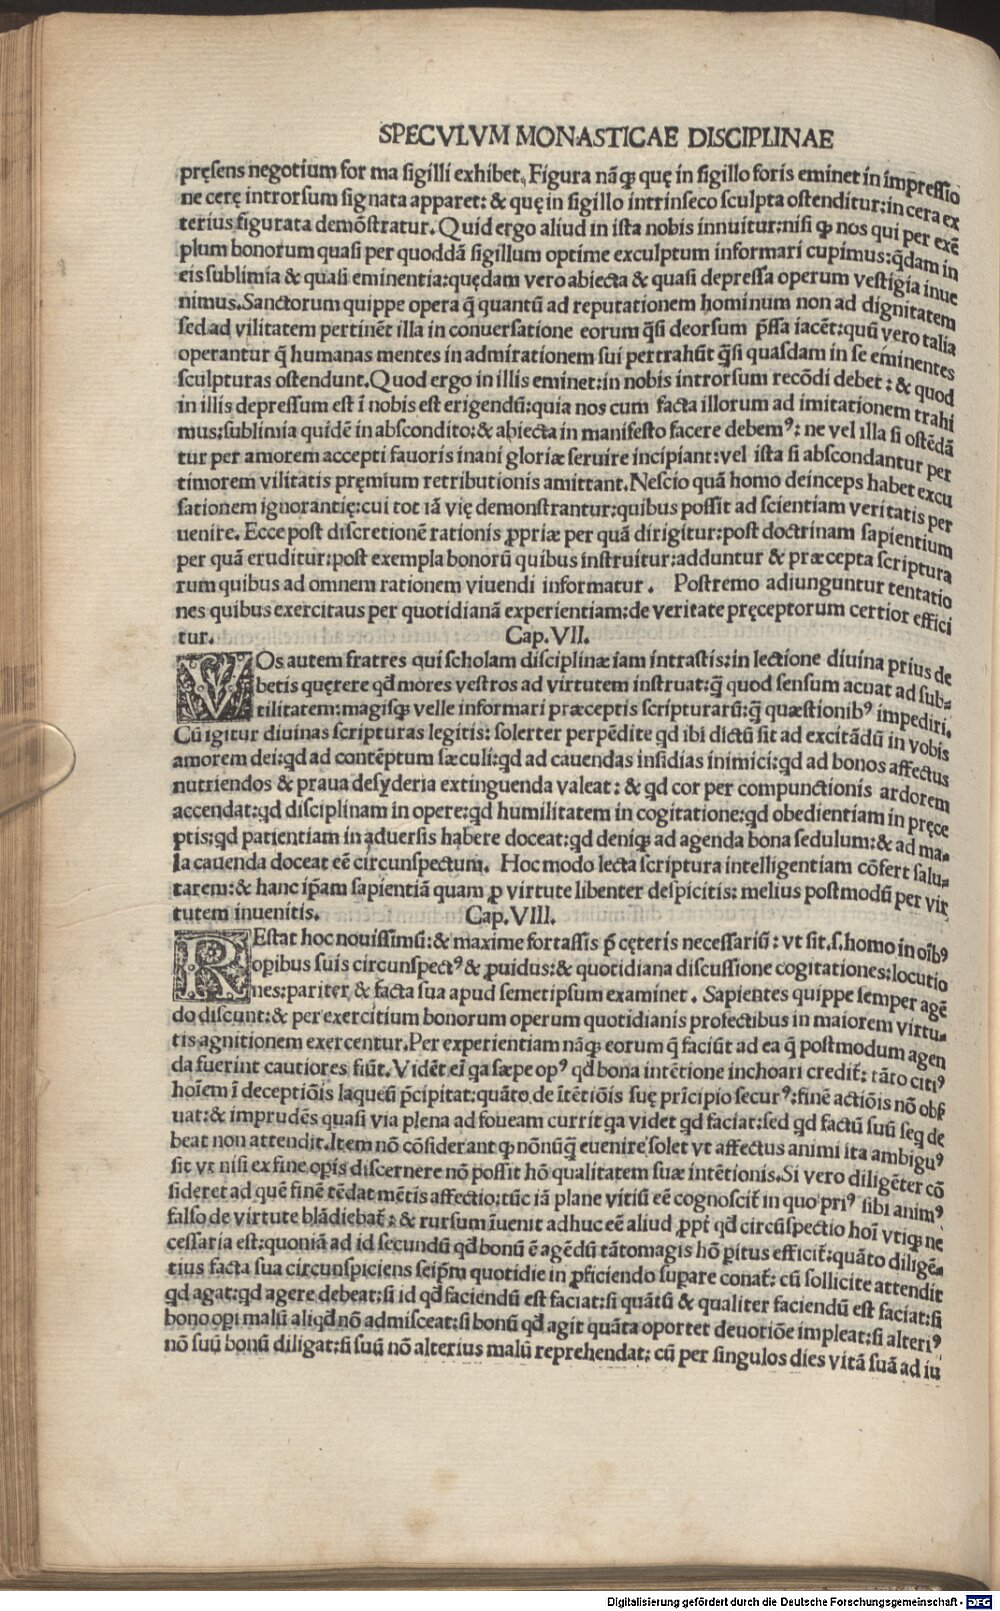 SPECVLVM MONASTICAE DISCIPLINAE
pręsens negotium for ma sigilli exhibet. Figura nãqꝫ quę in sigillo foris eminet in impressio
ne cerę introrsum signata apparet: & quę in sigillo intrinseco sculpta ostenditur: in cera ex
terius figurata demõstratur. Quid ergo aliud in ista nobis innuitur: nisi ꝙ nos qui per exẽ
plum bonorum quasi per quoddã sigillum optime exculptum informari cupimus: q̃dam in
eis sublimia & quasi eminentia: quędam vero abiecta & quasi depressa operum vestigia inue
nimus. Sanctorum quippe opera q̃ quantũ ad reputationem hominum non ad dignitatem
sed ad vilitatem pertinẽt illa in conuersatione eorum q̃si deorsum p̃ssa iacẽt: quũ vero talia
operantur q̃ humanas mentes in admirationem sui pertrahũt q̃si quasdam in se eminentes
sculpturas ostendunt. Quod ergo in illis eminet: in nobis introrsum recõdi debet: & quod
in illis depressum est ĩ nobis est erigendũ: quia nos cum facta illorum ad imitationem trahi
mus: sublimia quidẽ in abscondito: & abiecta in manifesto facere debemꝰ: ne vel illa si ostẽdã
tur per amorem accepti fauoris inani gloriæ seruire incipiant: vel ista si abscondantur per
timorem vilitatis pręmium retributionis amittant. Nescio quã homo deinceps habet excu
sationem ignorantię: cui tot iã vię demonstrantur: quibus possit ad scientiam veritatis per
uenire. Ecce post discretionẽ rationis ꝓpriæ per quã dirigitur: post doctrinam sapientium
per quã eruditur: post exempla bonorũ quibus instruitur: adduntur & præcepta scriptura
rum quibus ad omnem rationem viuendi informatur. Postremo adiunguntur tentatio
nes quibus exercitaus per quotidianã experientiam: de veritate pręceptorum certior effici
tur. Cap. VII.
VOs autem fratres qui scholam disciplinæ iam intrastis: in lectione diuina prius de
betis quęrere qđ mores vestros ad virtutem instruat: q̃ quod sensum acuat ad sub-
tilitatem: magisqꝫ velle informari præceptis scripturarũ: q̃ quæstionibꝰ impediri.
Cũ igitur diuinas scripturas legitis: solerter perpẽdite qđ ibi dictũ sit ad excitãdũ in vobis
amorem dei: qđ ad contẽptum sæculi: qđ ad cauendas insidias inimici: qđ ad bonos affectus
nutriendos & praua desyderia extinguenda valeat: & qđ cor per compunctionis ardorem
accendat: qđ disciplinam in opere: qđ humilitatem in cogitatione: qđ obedientiam in pręce
ptis: qđ patientiam in aduersis habere doceat: qđ deniqꝫ ad agenda bona sedulum: & ad ma-
la cauenda doceat eẽ circunspectum. Hoc modo lecta scriptura intelligentiam cõfert salu-
tarem: & hanc ip̃am sapientiã quam ꝓ virtute libenter despicitis: melius postmodũ per vir
tutem inuenitis. Cap. VIII.
REstat hoc nouissimũ: & maxime fortassis p̃ cęteris necessariũ: vt sit .s. homo in oĩbꝰ
opibus suis circunspectꝰ & ꝓuidus: & quotidiana discussione cogitationes: locutio
nes: pariter & facta sua apud semetipsum examinet. Sapientes quippe semper agẽ
do discunt: & per exercitium bonorum operum quotidianis profectibus in maiorem virtu-
tis agnitionem exercentur. Per experientiam nãqꝫ eorum q̃ faciũt ad ea q̃ postmodum agen
da fuerint cautiores fiũt. Vidẽt eĩ qa sæpe opꝰ qđ bona intẽtione inchoari credit᷑: tãto citiꝰ
hoĩem ĩ deceptiõis laqueũ p̃cipitat: quãto de ĩtẽtiõis suę prĩcipio securꝰ: finẽ actiõis nõ obẜ
uat: & imprudẽs quasi via plena ad foueam currit qa videt qđ faciat: sed qđ factũ suũ seq de
beat non attendit. Item nõ cõsiderant ꝙ nõnũq̃ euenire solet vt affectus animi ita ambiguꝰ
sit vt nisi ex fine opis discernere nõ possit hõ qualitatem suæ intẽtionis. Si vero diligẽter cõ
sideret ad quẽ finẽ tẽdat mẽtis affectio: tũc iã plane vitiũ eẽ cognoscit᷑ in quo priꝰ sibi animꝰ
falso de virtute blãdiebat᷑: & rursum ĩuenit adhuc eẽ aliud ꝓpt᷑ qđ circũspectio hoĩ vtiqꝫ ne
cessaria est: quoniã ad id secundũ qđ bonũ ẽ agẽdũ tãtomagis hõ peritus efficit᷑: quãto diligẽ-
tius facta sua circunspiciens seip̃m quotidie in ꝓficiendo supare conat᷑: cũ sollicite attendit
qđ agat: qđ agere debeat: si id qđ faciendũ est faciat: si quãtũ & qualiter faciendũ est faciat: si
bono opi malũ aliqđ nõ admisceat: si bonũ qđ agit quãta oportet deuotiõe impleat: si alteriꝰ
nõ suũ bonũ diligat: si suũ nõ alterius malũ reprehendat: cũ per singulos dies vitã suã ad iu
Digitalisierung gefördert durch die Deutsche Forschungsgemeinschaft - DFG